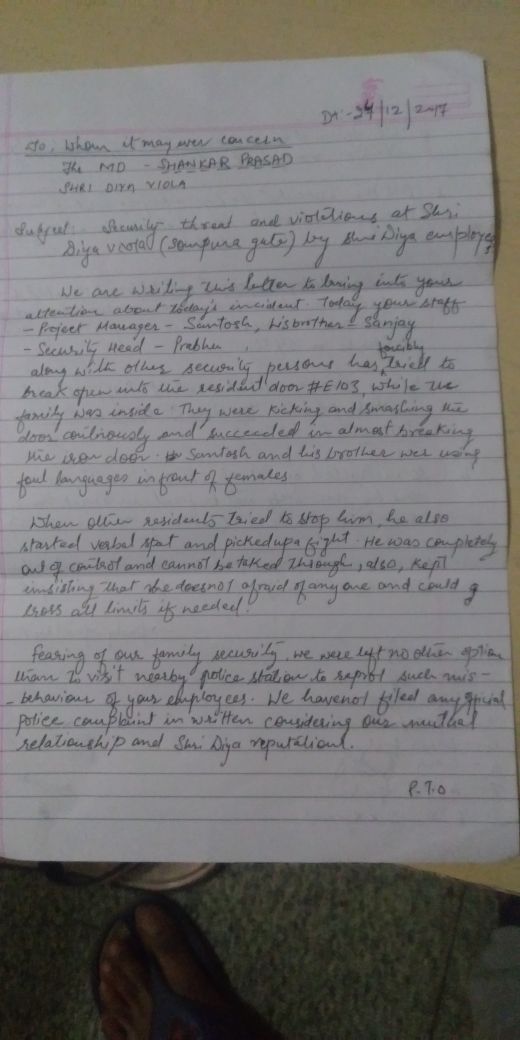 Dt:-24/12/2017
To, Whom it may ever concern
The MD - SHANKAR PRASAD
SHRI DIYA VIOLA
Subject: Security threat and violations at Shri
Diya viola (Sompura gate) by Shri Diya employees
We are writing this letter to bring into your
attention about today's incident. Today your staff
- Project Manager - Santosh, his brother - Sanjay
- Security Head - Prabhu
forcibly
along with other security persons has tried to
break open into the resident door #E103, while the
family was inside. They were kicking and smashing the
door continously and succeeded in almost breaking
the iron door. Santosh and his brother wer using
foul languages in front of females.
When other residents tried to stop him, he also
started verbal spat and picked up a fight. He was completely
out of control and cannot be talked through, also, kept
insisting that he doesnot afraid of anyone and could
cross all limits if needed.
Fearing of our family security, we were left no other option
than to visit nearby police station to report such mis-
- behaviour of your employees. We havenot filed any
police complaint in written considering our mutual
relationship and Shri Diya reputation.
P.T.O